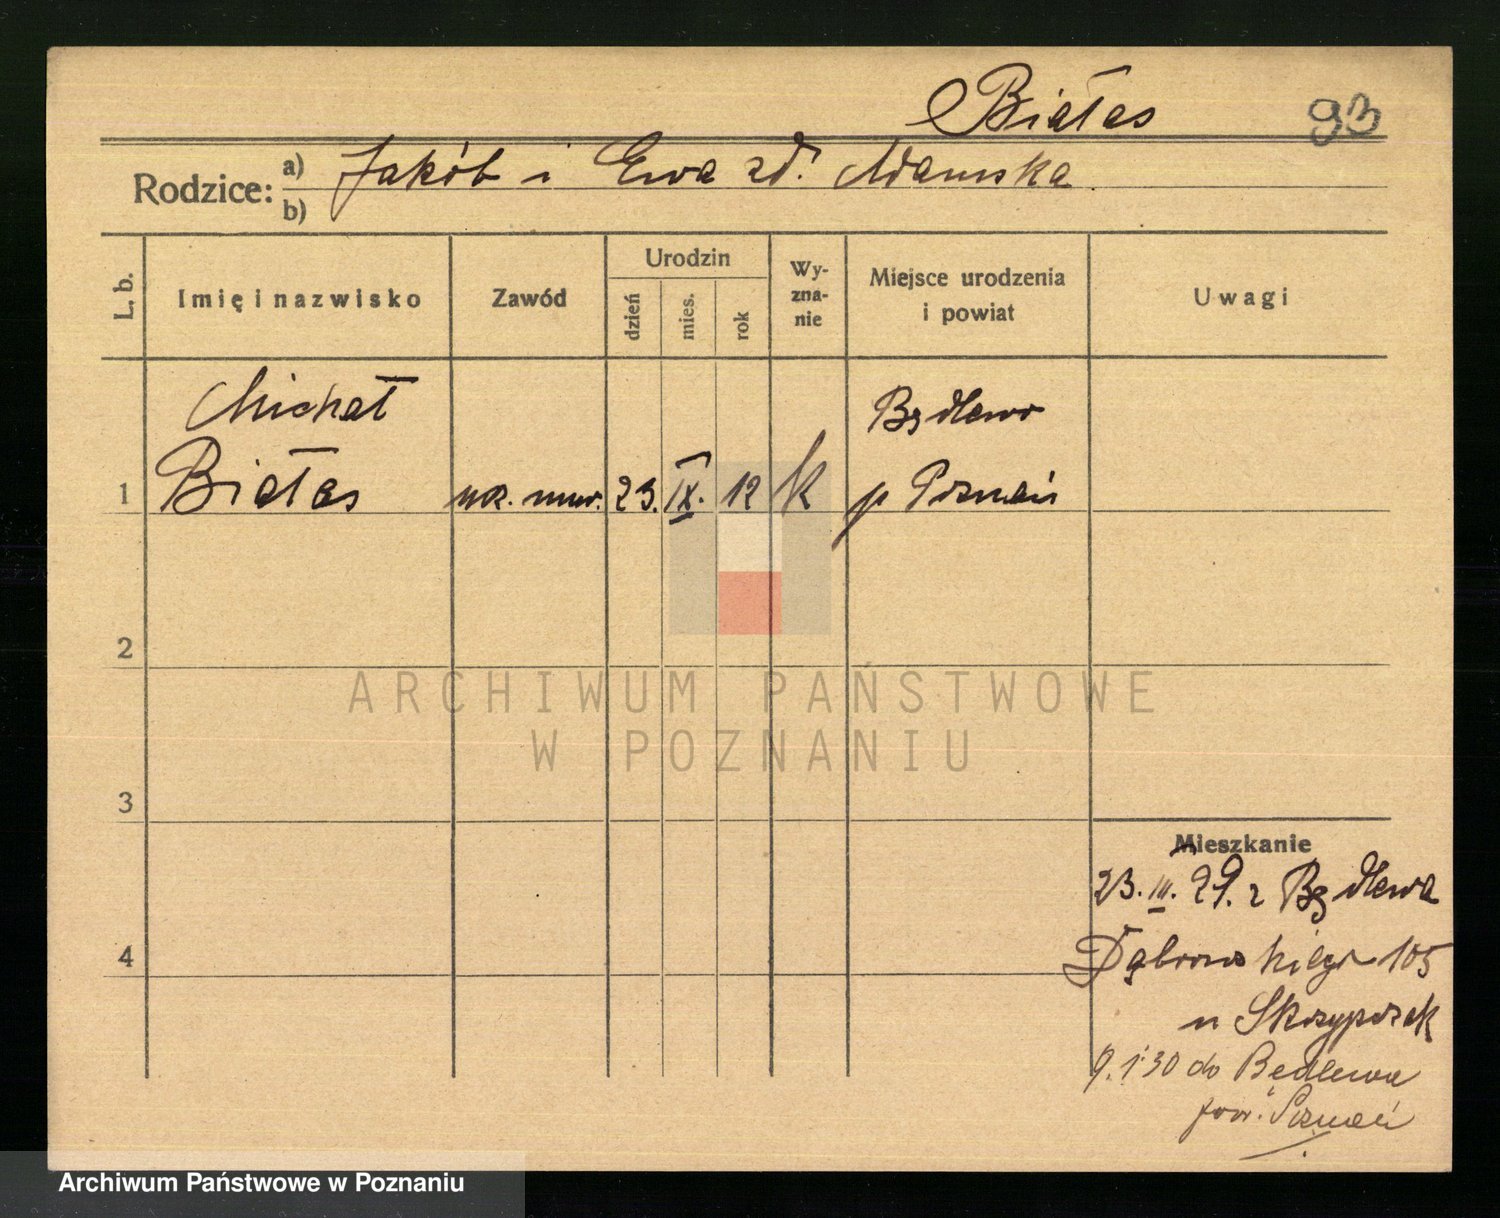 Białas 93
Rodzice: a) Jakób i Ewa zd. Adamska
b)
L. b. Imię i nazwisko Zawód Urodzin dzień mies. rok Wy-zna-nie Miejsce urodzenia i powiat Uwagi
Michał Bądlewo
1 Białas ucz. mur. 23. IX. 12 k p Poznań
2
ARCHIWUM PAŃSTWOWE
W POZNANIU
3
Mieszkanie
23. III. 29. z Bądlewa
4 Dąbrowskiego 105
u Skrzypczak
9. 1. 30 do Będlewa
pow. Poznań
Archiwum Państwowe w Poznaniu